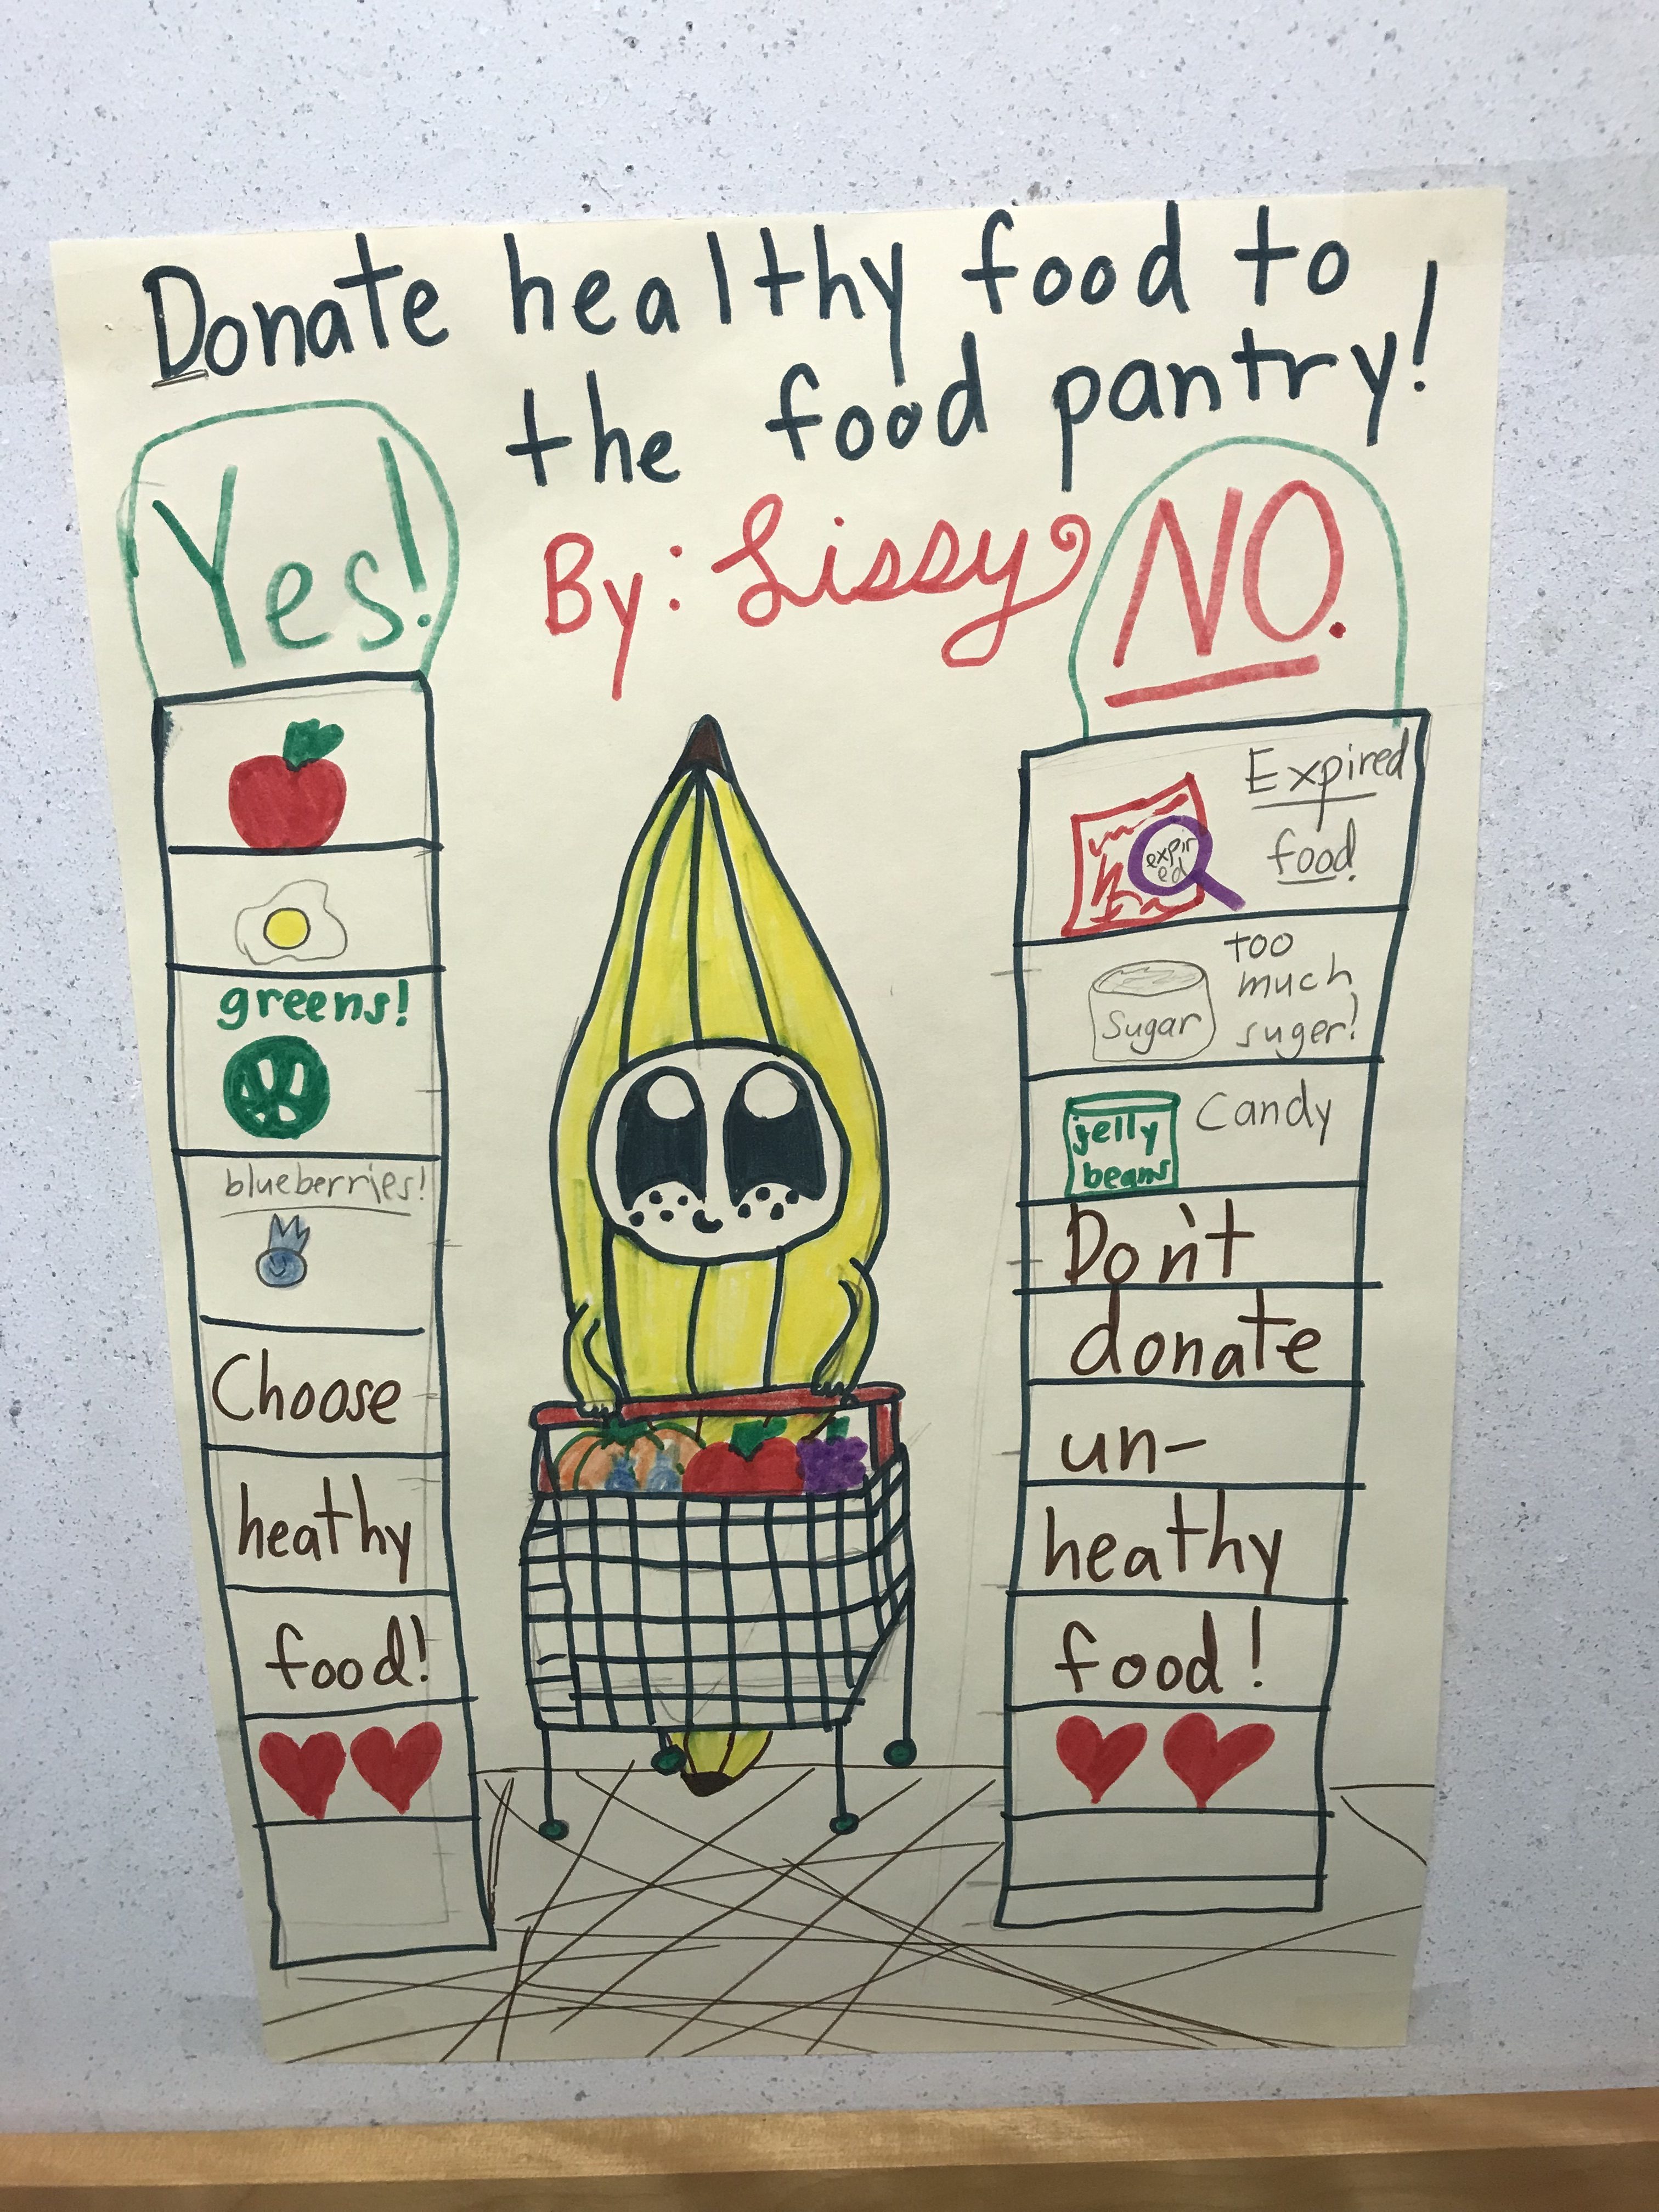 Donate healthy food to
the food pantry!
By: Lissy
Yes!
greens!
blueberries!
Choose
heathy
food!
NO.
Expired
food
expir
ed
Too
much
suger!
Sugar
Candy
jelly
beans
Don't
donate
un-
heathy
food!